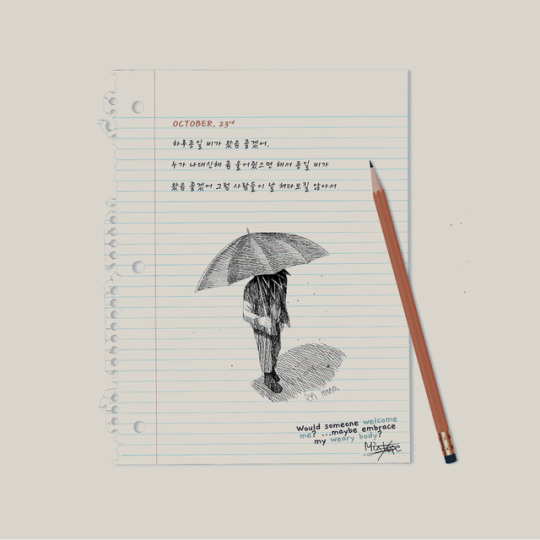 OCTOBER, 23rd
하루종일 비가 왔음 좋겠어.
누가 나대신해 좀 울어줬으면 해서 종일 비가
왔음 좋겠어 그럼 사람들이 날 쳐다보질 않아서
Would someone welcome
me? ...maybe embrace
my weary body?
Mixtape